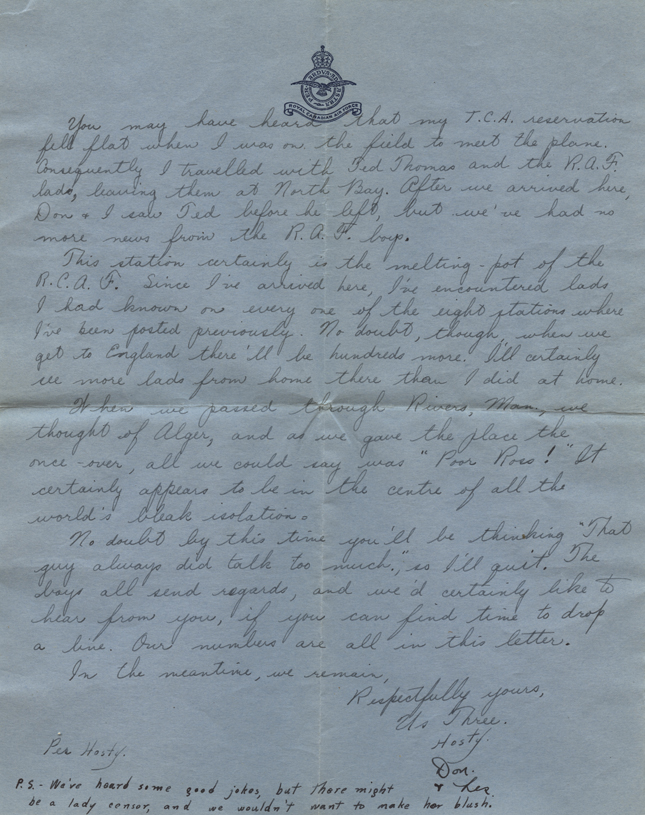 PER ARDUA AD ASTRA
ROYAL CANADIAN AIR FORCE
You may have heard that my T.C.A. reservation
fell flat when I was on the field to meet the plane.
Consequently I travelled with Ted Thomas and the R.A.F.
lads, leaving them at North Bay. After we arrived here,
Don & I saw Ted before he left, but we've had no
more news from the R.A.F. boys.
This station certainly is the melting-pot of the
R.C.A.F. Since I've arrived here, I've encountered lads
I had known on every one of the eight stations where
I've been posted previously. No doubt, though, when we
get to England there'll be hundreds more. I'll certainly
see more lads from home there than I did at home.
When we passed through Rivers, Man., we
thought of Alger, and as we gave the place the
once-over, all we could say was "Poor Ross!" It
certainly appears to be in the centre of all the
world's bleak isolation.
No doubt by this time you'll be thinking "That
guy always did talk too much.", so I'll quit. The
boys all send regards, and we'd certainly like to
hear from you, if you can find time to drop
a line. Our numbers are all in this letter.
In the meantime, we remain,
Respectfully yours,
Us Three.
Hosty.
Don.
& Les
Per Hosty.
P.S.- We've heard some good jokes, but there might
be a lady censor, and we wouldn't want to make her blush.